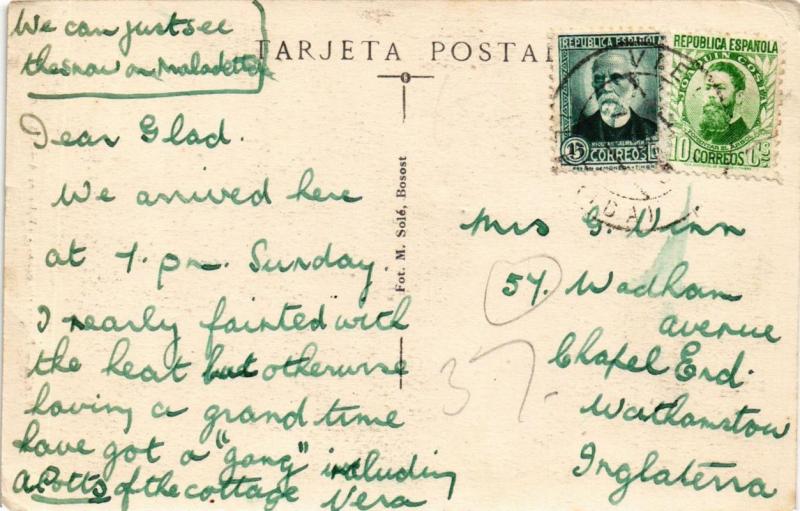 We can just see
the snow on Maladetta
TARJETA POSTAL
Dear Glad.
We arrived here
at 7. pm. Sunday.
I nearly fainted with
the heat but otherwise
having a grand time
have got a "gang" including
a Potts of the cottage
Vera
Fot. M. Solé, Bosost
REPUBLICA ESPAÑOLA
15
CORREOS
REPUBLICA ESPAÑOLA
JOAQUIN COSTA
10 CORREOS CTS
VIE
Mrs G. Venn
57. Wadham
avenue
Chapel End.
Walthamstow
Inglaterra
37